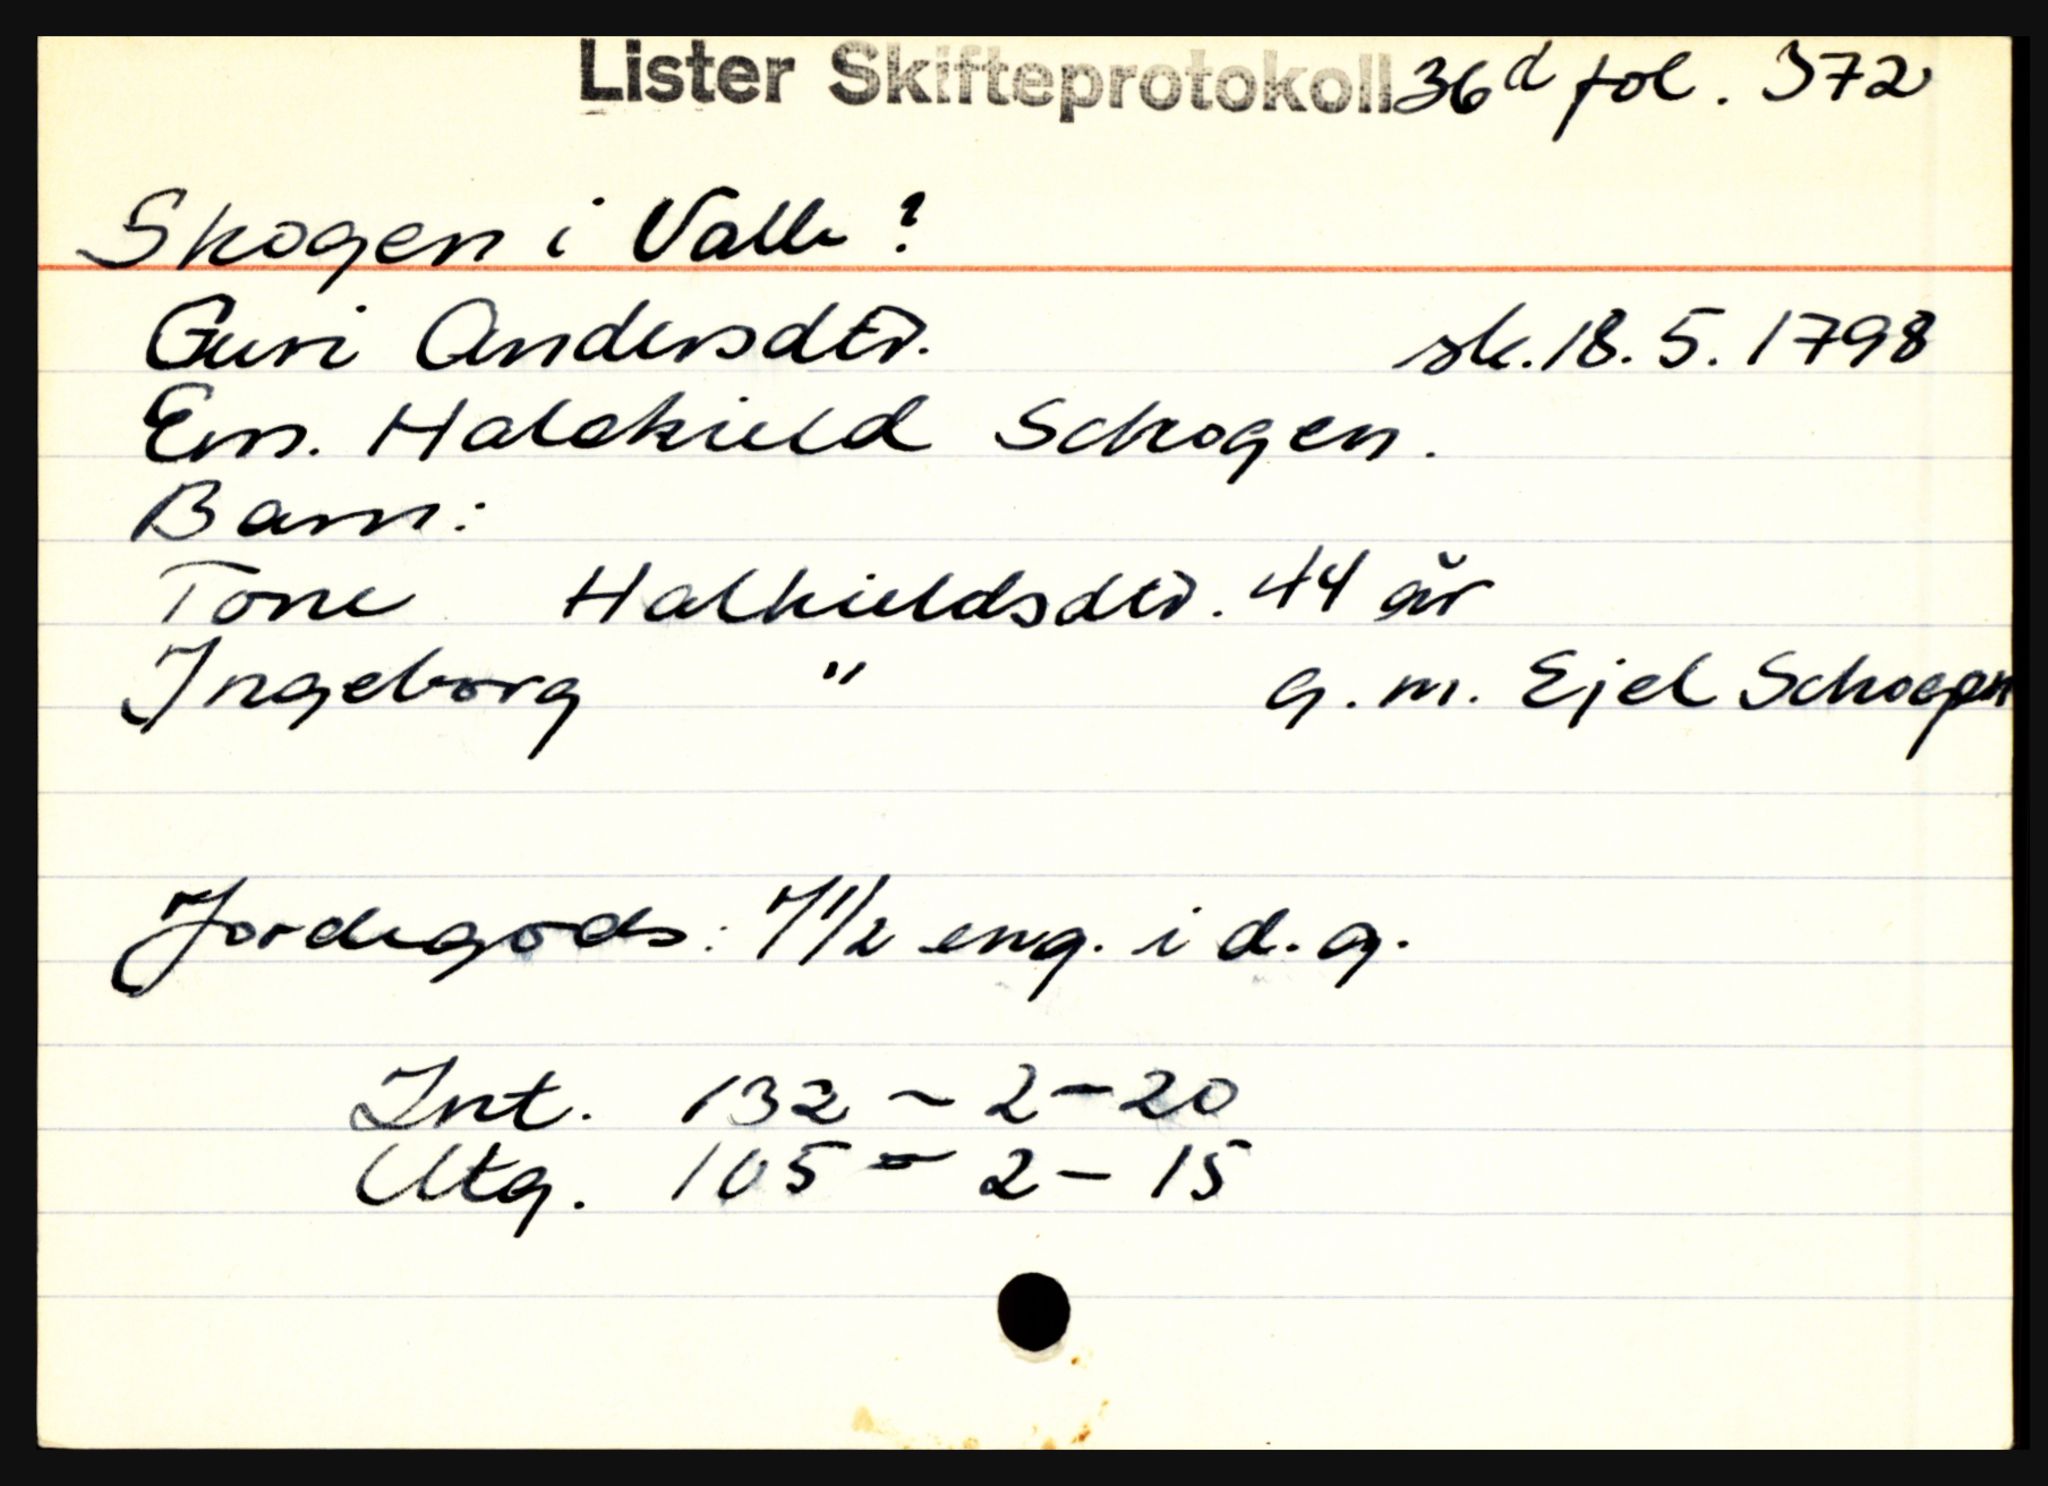 Lister Skifteprotokoll 36d fol. 372
Skogen i Valle ?
Guri Andersdtr. sk. 18. 5. 1798
Em. Halckield Schogen.
Barn:
Tone Halkieldsdtr. 44 år
Ingeborg " g. m. Ejel Schogen
Jordegods: 7 1/2 eng. i d. g.
Int. 132 - 2 - 20
Utg. 105 - 2 - 15